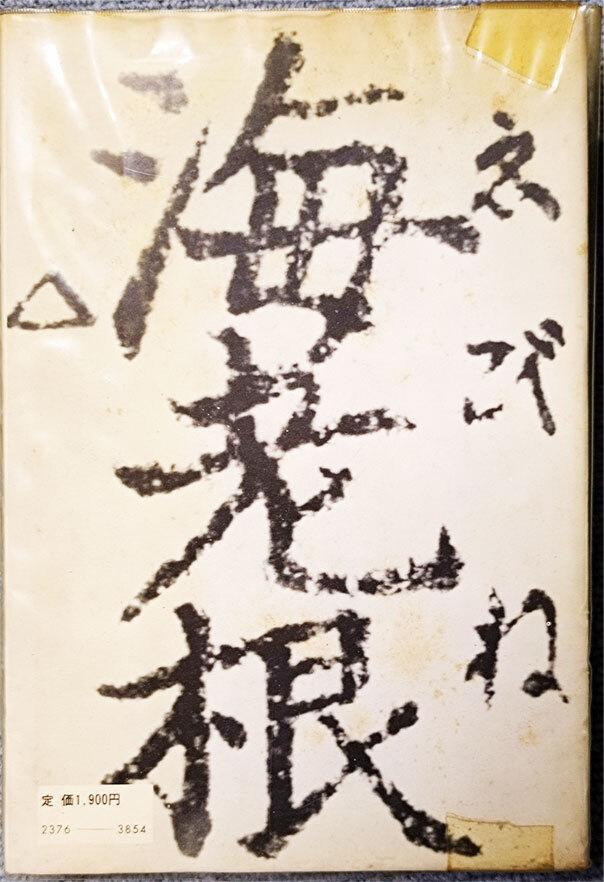 えびね
海老根
△
定 価1,900円
2376 ── 3854